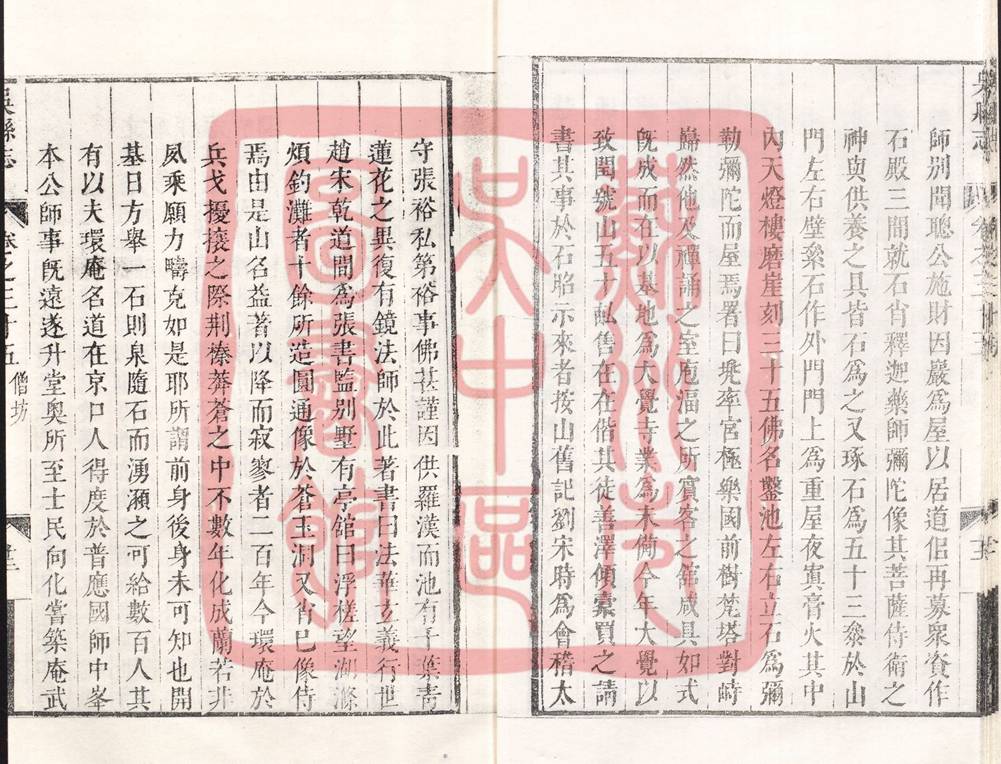 師別聞聰公施財因巖爲屋以居道侶再募衆資作
石殿三間就石肖釋迦藥師彌陀像其菩薩侍衛之
神與供養之具皆石爲之又琢石爲五十三叅於山
門左右壁絫石作外門門上爲重屋夜寘膏火其中
內天燈樓磨崖刻三十五佛名鑿池左右立石爲彌
勒彌陀而屋焉署曰兠率宮極樂國前樹梵塔對峙
巋然他及禪誦之室庖湢之所賓客之舘咸具如式
旣成而在以基地爲大覺寺業爲未僃今年大覺以
致閏號山五十畝售在在偕其徒善澤傾橐買之請
書其事於石昭示來者按山舊記劉宋時爲會稽太
吳縣志
卷之三十五 僧坊
守張裕私第裕事佛甚謹因供羅漢而池有千葉靑
蓮花之異復有鏡法師於此著書曰法華玄義行世
趙宋乾道間爲張書監別墅有亭舘曰浮槎望湖滌
煩釣灘者十餘所造圓通像於蒼玉洞又肖巳像侍
焉由是山名益著以降而寂寥者二百年今環庵於
兵戈擾攘之際荆榛莾蒼之中不數年化成蘭若非
夙乘願力疇克如是耶所謂前身後身未可知也開
基日方舉一石則泉隨石而湧瀕之可給數百人其
有以夫環庵名道在京口人得度於普應國師中峯
本公師事旣遠遂升堂奥所至士民向化嘗築庵武
蘇州市
吳中區
圖書館